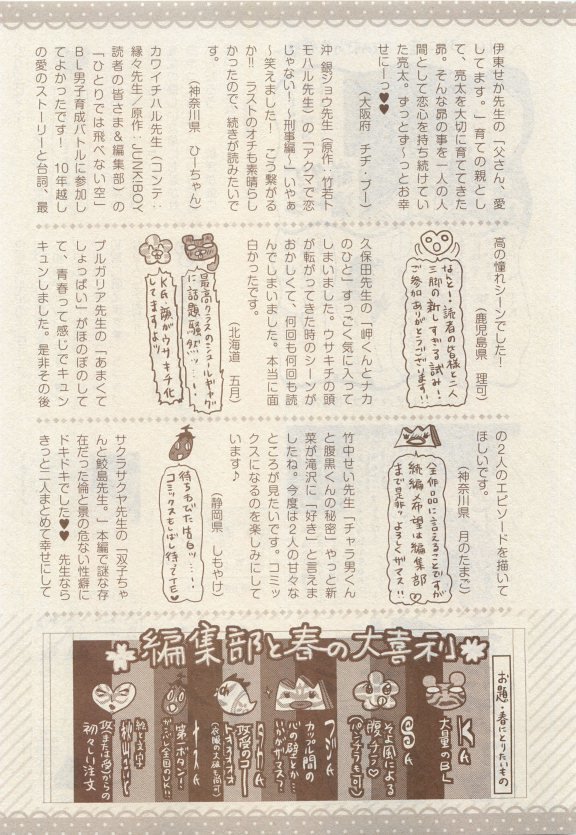 伊東せか先生の「父さん、愛
してます。」育ての親とし
て、亮太を大切に育ててきた
昴。そんな昴の事を一人の人
間として恋心を持ち続けてい
た亮太。ずっとず〜っとお幸
せにーっ♥♥
（大阪府　チヂ・ブー）
沖 銀ジョウ先生（原作：竹若ト
モハル先生）の「アクマで恋
じゃない！〜刑事編〜」いやぁ
〜笑えました！　こう繋がる
か!!　ラストのオチも素晴らし
かったので、続きが読みたいで
す。
（神奈川県　ひーちゃん）
カワイチハル先生（コンテ：
縁々先生／原作：JUNKIBOY
読者の皆さま＆編集部）の
「ひとりでは飛べない空」
BL男子育成バトルに参加し
てよかったです！　10年越し
の愛のストーリーと台詞、最
高の憧れシーンでした！
（鹿児島県　理可）
なんと！読者の皆様と二人
三脚の新しすぎる試み！
ご参加ありがとうございます!!
久保田先生の「岬くんとナカ
のひと」すっごく気に入って
しまいました。ウサキチの頭
が転がってきた時のシーンが
おかしくて、何回も何回も読
んでしまいました。本当に面
白かったです。
（北海道　五月）
最高クラスのシュールギャグ
に話題騒然ッ……！
K氏・顔がウサキチ化
してますよッ
ブルガリア先生の「あまくて
しょっぱい」がほのぼのして
て、青春って感じでキュン
キュンしました。是非その後
の２人のエピソードを描いて
ほしいです。
（神奈川県　月のたまご）
全作品に言えることですが
続編希望は編集部
まで是非ッ よろしくザマス!!
竹中せい先生「チャラ男くん
と腹黒くんの秘密」やっと新
菜が滝沢に「好き」と言えま
したね。今度は２人の甘々な
ところが見たいです。コミッ
クスになるのを楽しみにして
います♪
（静岡県　しもやけ）
待ちわびた告白ッ…！
コミックスもしばし待ってTE♥
サクラサクヤ先生の「双子ちゃ
んと鮫島先生。」本編で謎な存
在だった倫と景の危ない性癖に
ドキドキでした♥♥　先生なら
きっと二人まとめて幸せにして
編集部と春の大喜利
お題・春にとりたいもの
K氏
大量のBL
S氏
そよ風による
腹チラ♡
（パンチラも可）
フジ氏
カップル間の
心の壁とか…
いかがザマス？
攻受のコート
（衣服の大破も尚可）
第二ボタン！
かっぷし全国のDK!!
絵と文字
攻（または受）からの
初々しい注文